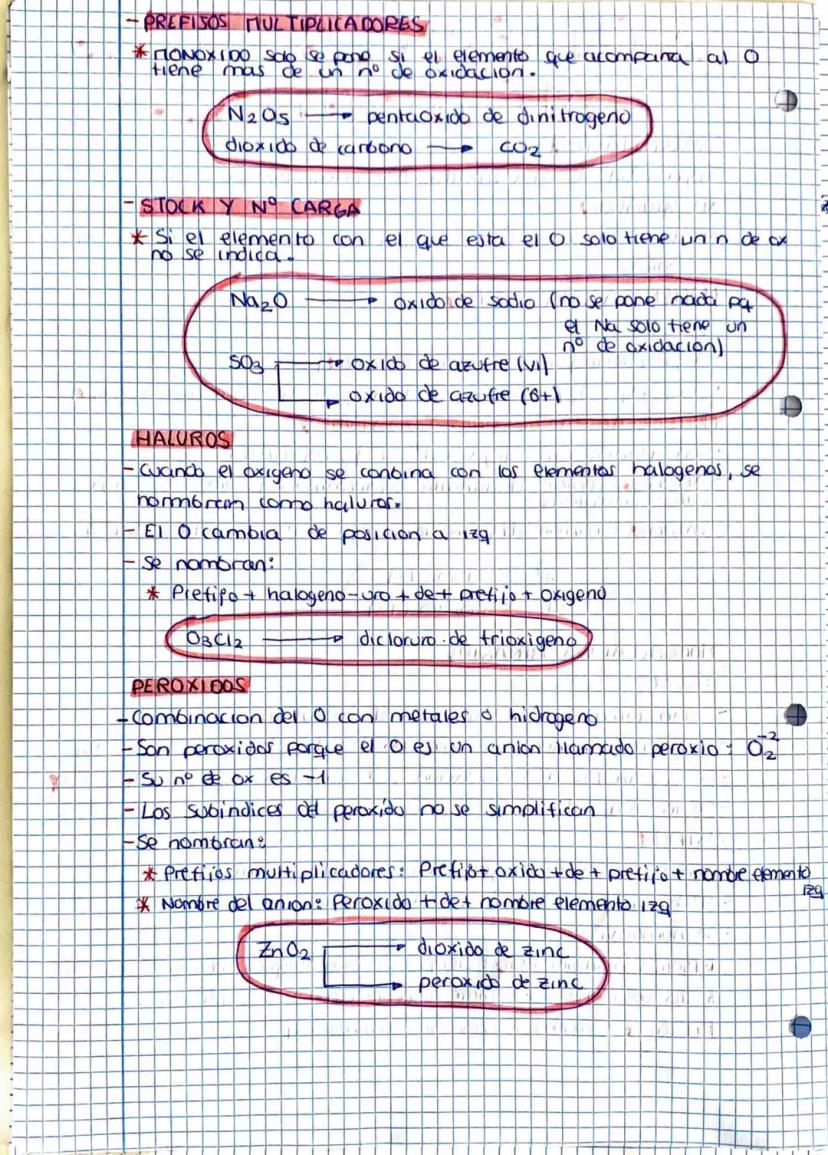 - PREFISOS MULTIPLICADORES
* MONOXIDO solo se pone si el elemento que acompaña al O
tiene mas de un nº de oxidación.
N2O5 → pentaoxido de dinitrogeno
dioxido de carbono → CO2
- STOCK Y Nº CARGA
* Si el elemento con el que esta el O solo tiene un n de ox
no se indica.
Na2O → oxido de sodio (no se pone nada pq
el Na solo tiene un
nº de oxidacion)
SO3 → oxido de azufre (VI)
→ oxido de azufre (6+)
HALUROS
- Cuando el oxigeno se conbina con los elementos halogenos, se
normbran como haluros.
- El O cambia de posicion a izq
- Se nombran:
* Prefipo + halogeno-uro + de + prefijo + oxigeno
O3Cl2 → dicloruro de trioxigeno
PEROXIDOS
- Combinacion del O con metales o hidrogeno
- Son peroxidos porque el O es un anion llamado peroxio: O2⁻²
- Su nº de ox es -1
- Los subindices del peroxido no se simplifican
- Se nombran:
* Prefijos multiplicadores: Prefijo+ oxido +de + prefijo + nombre elemento
izq
* Nombre del anion: Peroxido + de + nombre elemento izq
ZnO2 → dioxido de zinc
→ peroxido de zinc